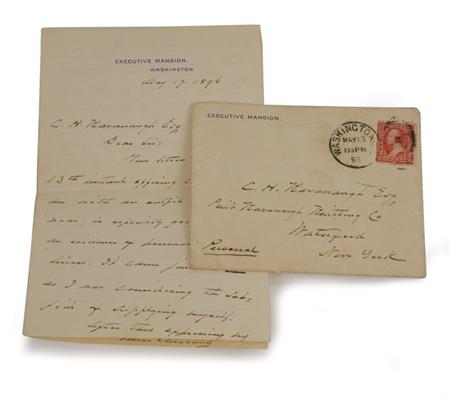 EXECUTIVE MANSION,
WASHINGTON.
May 17, 1896
C. H. Kavanaugh Esq
Dear Sir:
Your letter
13th instant offering to
me with an outfit
wear, is especially
an evidence of
It came just
as I was considering the sub-
ject of supplying myself.
After thus expressing my
EXECUTIVE MANSION.
WASHINGTON
MAY 18
96
C. H. Kavanaugh Esq
Prest Kavanaugh Knitting Co
Waterford
New York
Personal